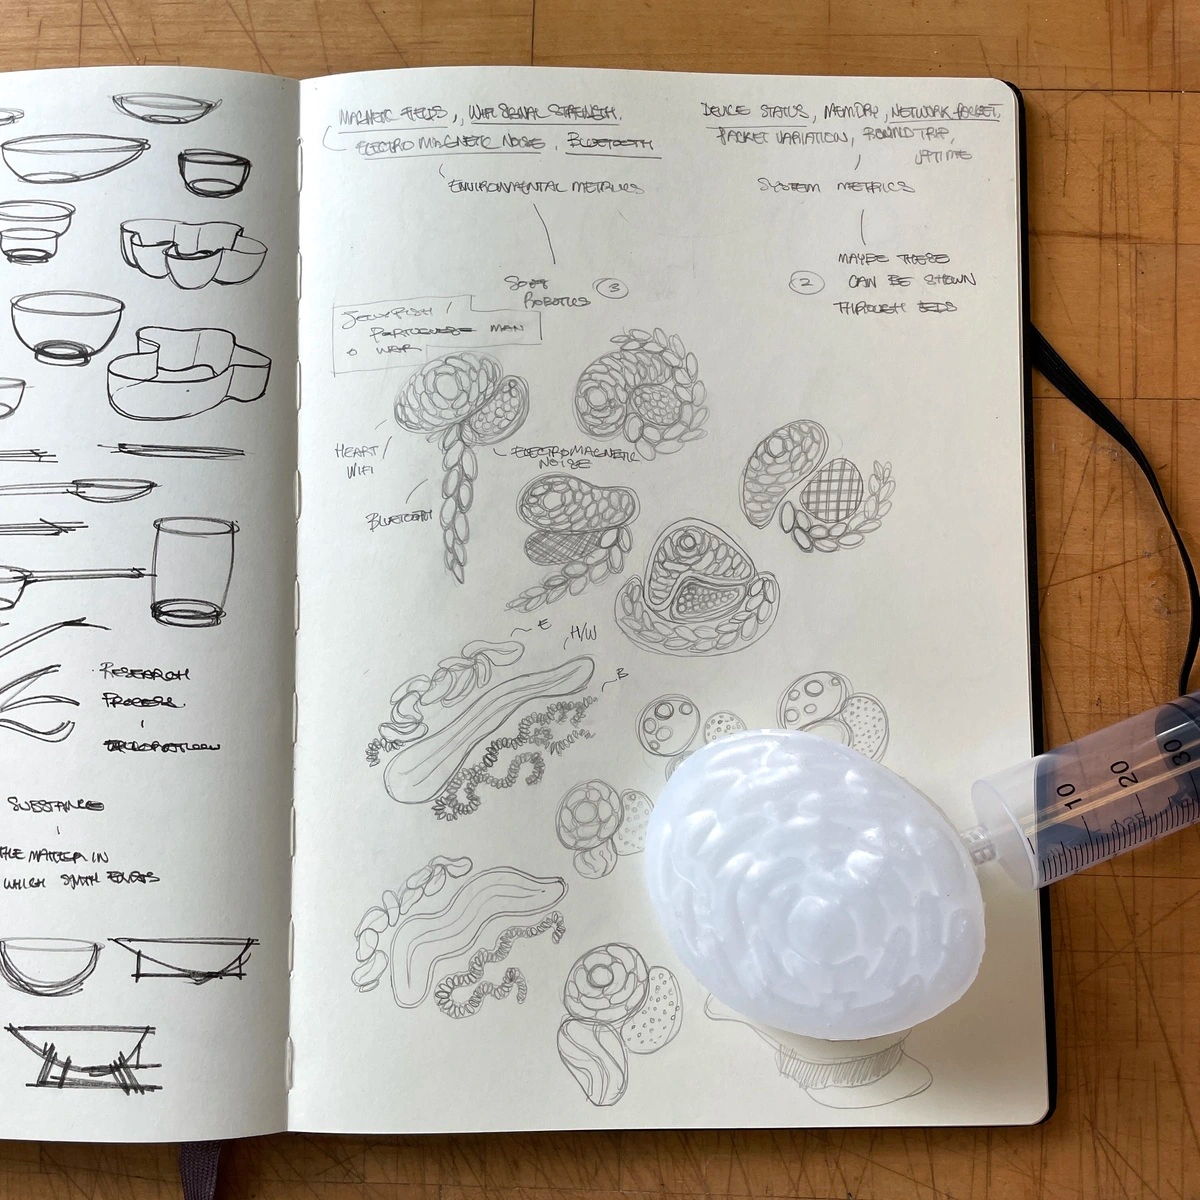 RESEARCH
PROCESS.
SUBSTANCE
THE MATTER IN
WHICH SYNTH
MAGNETIC FIELDS, WIFI SIGNAL STRENGTH.
ELECTRO MAGNETIC NOISE, BLUETOOTH
ENVIRONMENTAL METRICS
SOFT
ROBOTICS 3
JELLYFISH /
PORTUGUESE MAN
O WAR
DEVICE STATUS, MEMORY, NETWORK PACKET,
PACKET VARIATION, ROUND TRIP,
UPTIME
SYSTEM METRICS
MAYBE THESE
2 CAN BE SHOWN
THROUGH LEDS
HEART/
WIFI
ELECTROMAGNETIC
NOISE
BLUETOOTH
E
H/W
B
10
20
30